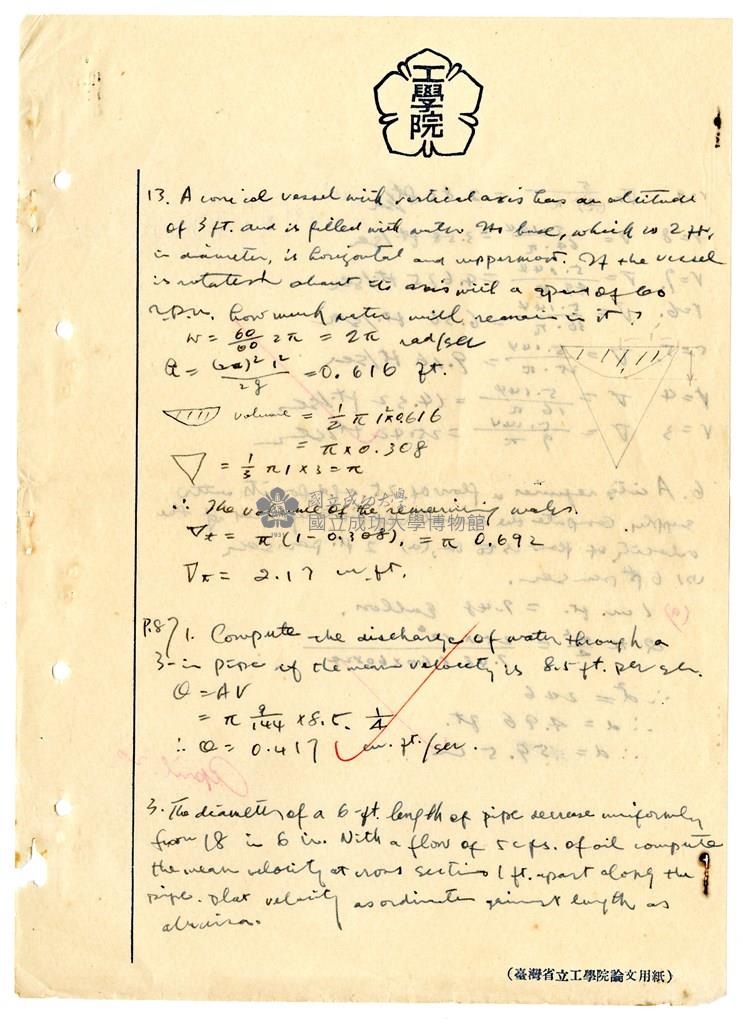 工學院
13. A conical vessel with vertical axis has an altitude
of 3 ft. and is filled with water. Its base, which is 2 ft.
in diameter, is horizontal and uppermost. If the vessel
is rotated about its axis with a speed of 60
r.p.m. how much water will remain in it?
w = 60/60 2π = 2π rad/sec
= (2π)² 1²/2g = 0.616 ft.
volume = 1/2 π 1² x 0.616
= π x 0.308
= 1/3 π 1 x 3 = π
∴ The volume of the remaining water.
= π (1 - 0.308), = π 0.692
= 2.17 cu. ft.
國立成功大學
國立成功大學博物館
P.87 1. Compute the discharge of water through a
3-in pipe if the mean velocity is 8.5 ft. per sec.
Q = AV
= π 9/144 x 8.5. 1/4
∴ Q = 0.417 cu. ft./sec.
3. The diameter of a 6-ft. length of pipe decrease uniformly
from 18 in 6 in. With a flow of 5 cfs. of oil compute
the mean velocity at cross sections 1 ft. apart along the
pipe. Plot velocity as ordinate against length as
abscissa.
(臺灣省立工學院論文用紙)